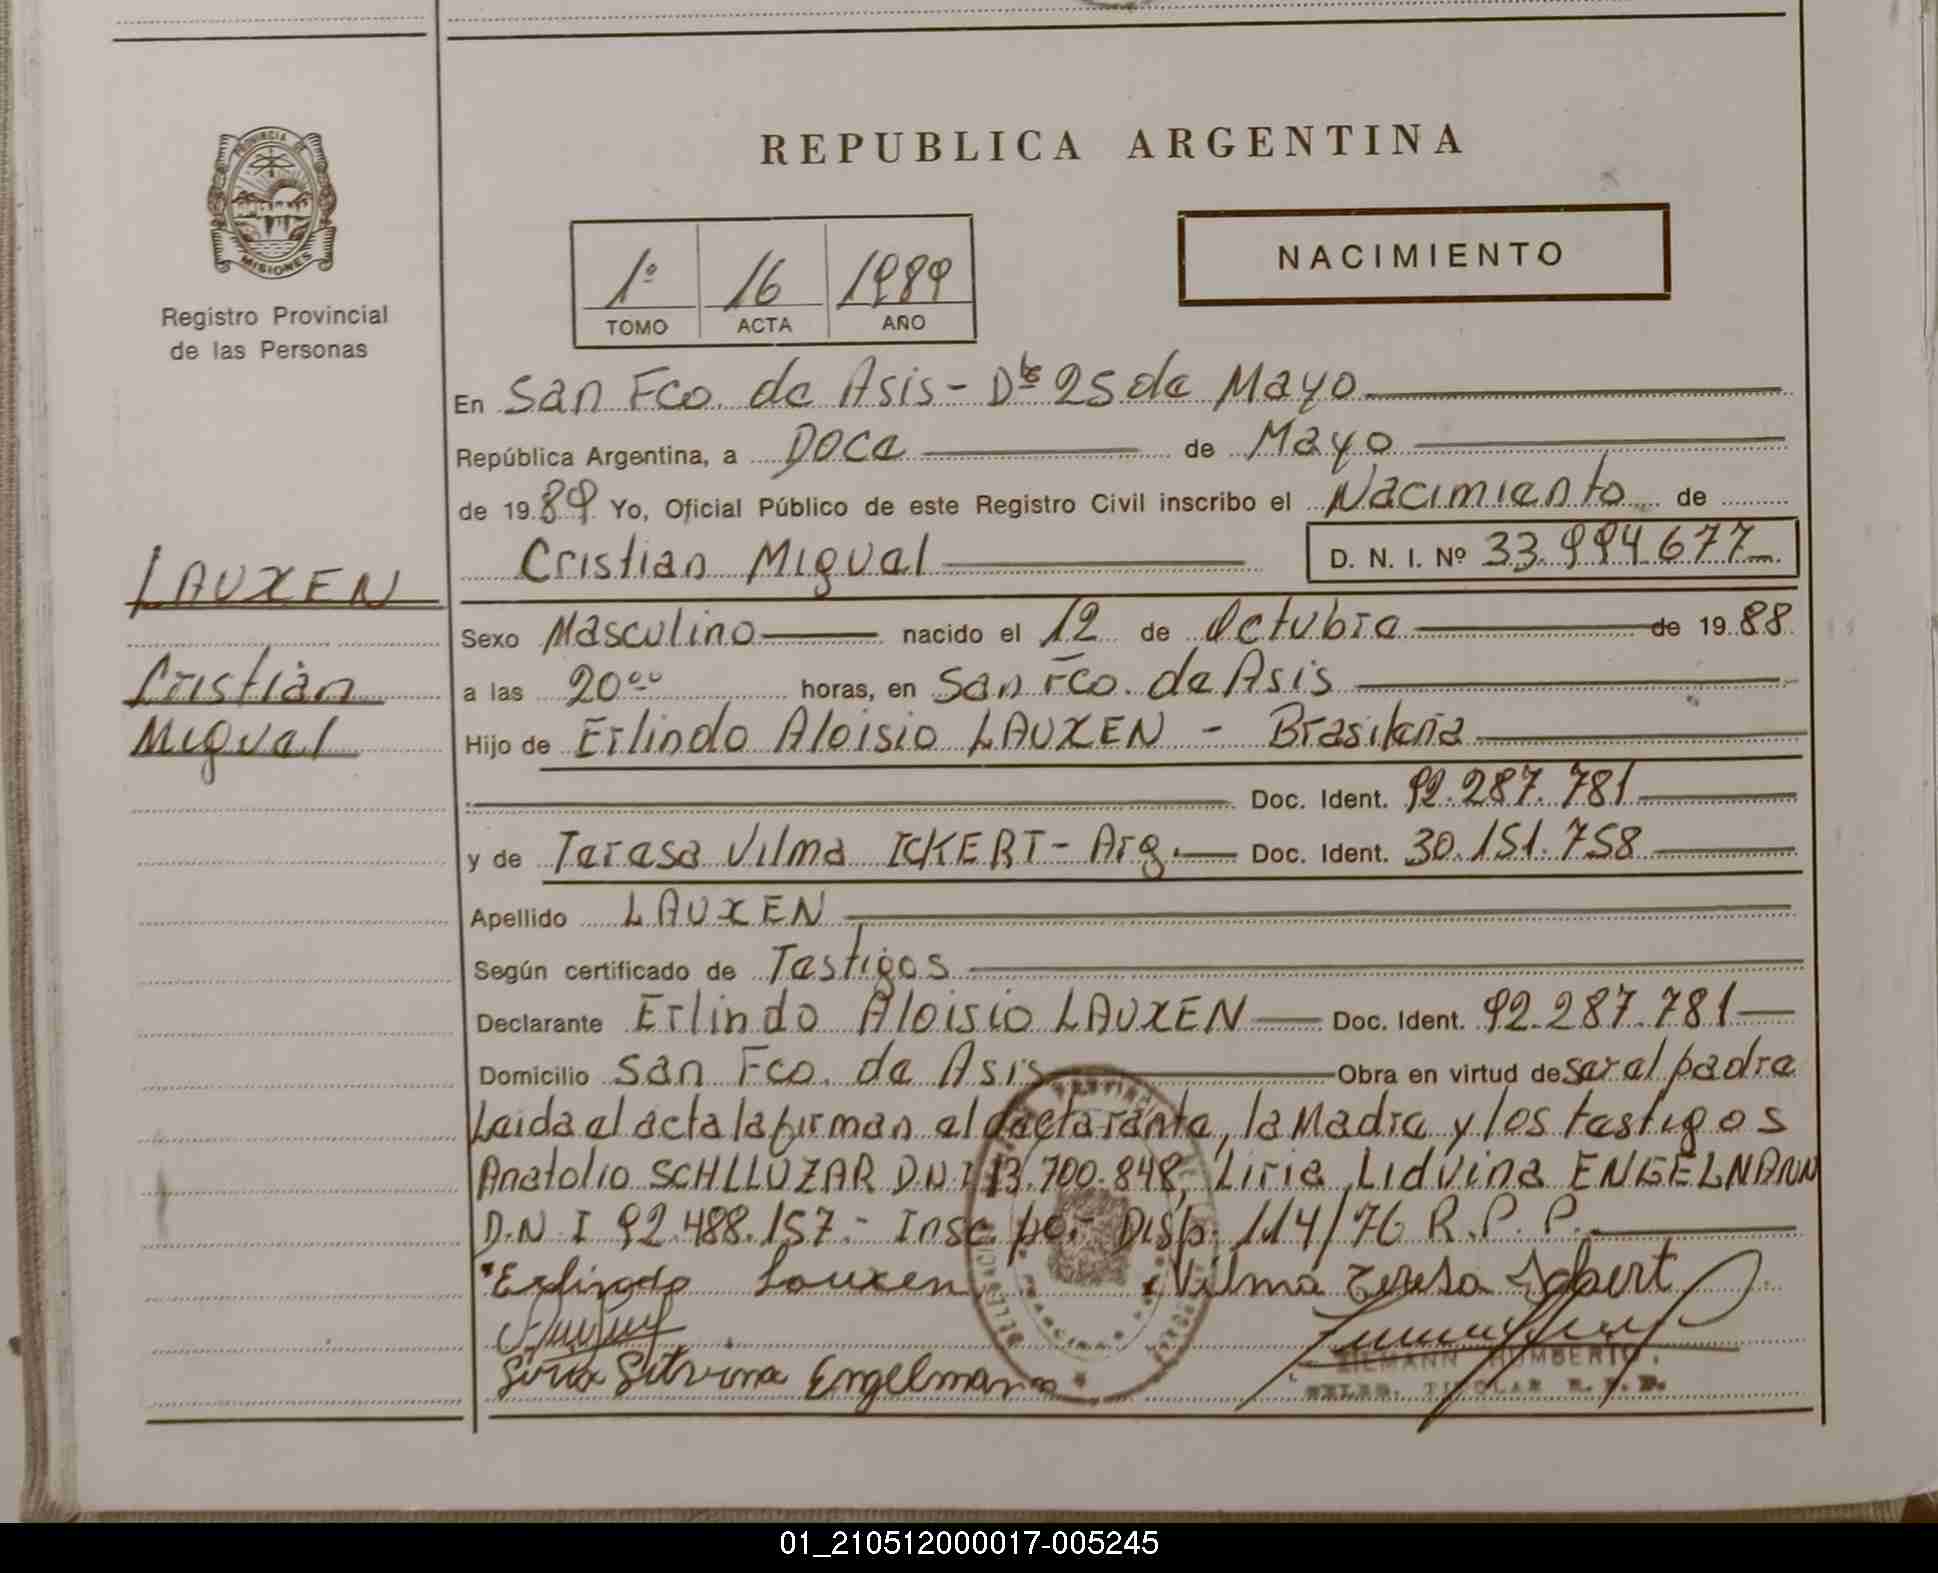 REPUBLICA ARGENTINA
PROVINCIA DE
MISIONES
Registro Provincial
de las Personas
1º 16 1989
TOMO ACTA AÑO
NACIMIENTO
En San Fco. de Asis - Dto 25 de Mayo
República Argentina, a Doce de Mayo
de 19 89 Yo, Oficial Público de este Registro Civil inscribo el Nacimiento de
Cristian Miguel D. N. I. Nº 33.994.677
LAUXEN
Cristian
Miguel
Sexo Masculino nacido el 12 de Octubre de 19 88
a las 20 00 horas, en San Fco. de Asis
Hijo de Erlindo Aloisio LAUXEN - Brasileña
Doc. Ident. 92.287.781
y de Teresa Vilma ICKERT - Arg. Doc. Ident. 30.151.758
Apellido LAUXEN
Según certificado de Testigos
Declarante Erlindo Aloisio LAUXEN Doc. Ident. 92.287.781
Domicilio San Fco. de Asis Obra en virtud de ser el padre
Leida el acta la firman el declarante, la Madre y los testigos
Anatolio SCHLLUZAR D.N.I 13.700.848, Liria Lidvina ENGELMANN
D.N.I 92.488.157.- Insc. por Disp. 114/76 R.P.P.
Erlindo Lauxen Vilma Teresa
Engelmann
ZIEMANN HUMBERTO
TITULAR R.P.P.
01_210512000017-005245